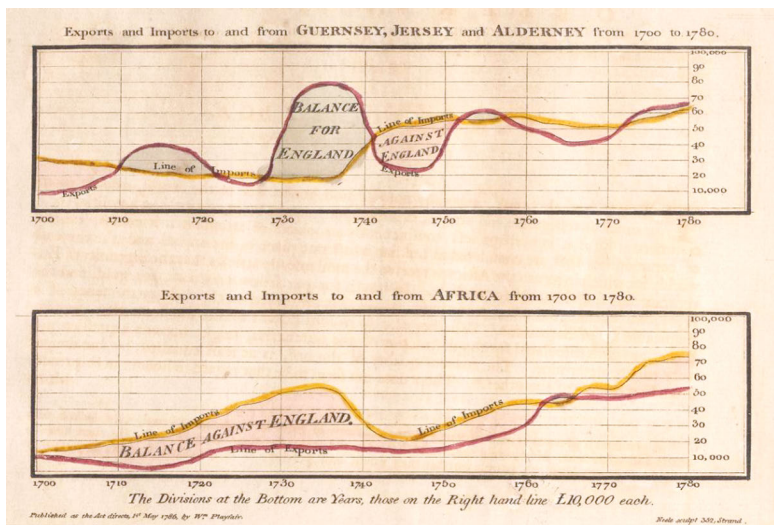 Exports and Imports to and from GUERNSEY, JERSEY and ALDERNEY from 1700 to 1780.
100,000
90
80
70
60
50
40
30
20
10,000
BALANCE
FOR
ENGLAND
Line of Imports
AGAINST
ENGLAND
Exports
Line of Imports
Exports
1700 1710 1720 1730 1740 1750 1760 1770 1780
Exports and Imports to and from AFRICA from 1700 to 1780.
100,000
90
80
70
60
50
40
30
20
10,000
Line of Imports
BALANCE AGAINST ENGLAND.
Line of Exports
Line of Imports
1700 1710 1720 1730 1740 1750 1760 1770 1780
The Divisions at the Bottom are Years, those on the Right hand line £10,000 each.
Published as the Act directs, 1st May 1786, by Wm. Playfair.
Neele sculpt 352, Strand.